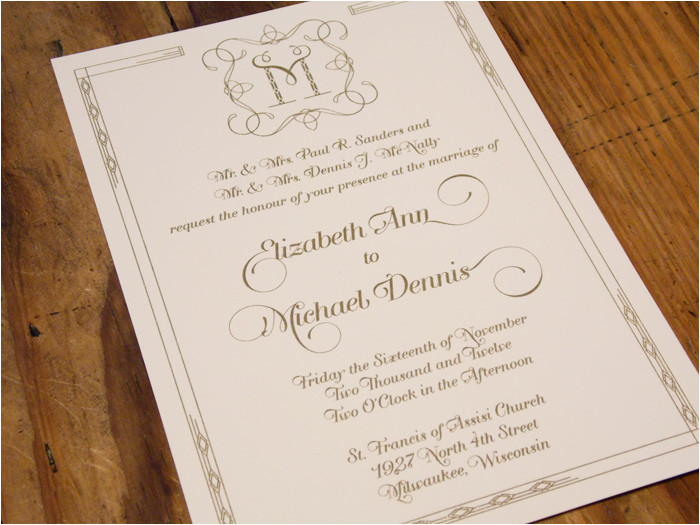 M
Mr. & Mrs. Paul R. Sanders and
Mr. & Mrs. Dennis J. McNally
request the honour of your presence at the marriage of
Elizabeth Ann
to
Michael Dennis
Friday the Sixteenth of November
Two Thousand and Twelve
Two O'Clock in the Afternoon
St. Francis of Assisi Church
1927 North 4th Street
Milwaukee, Wisconsin